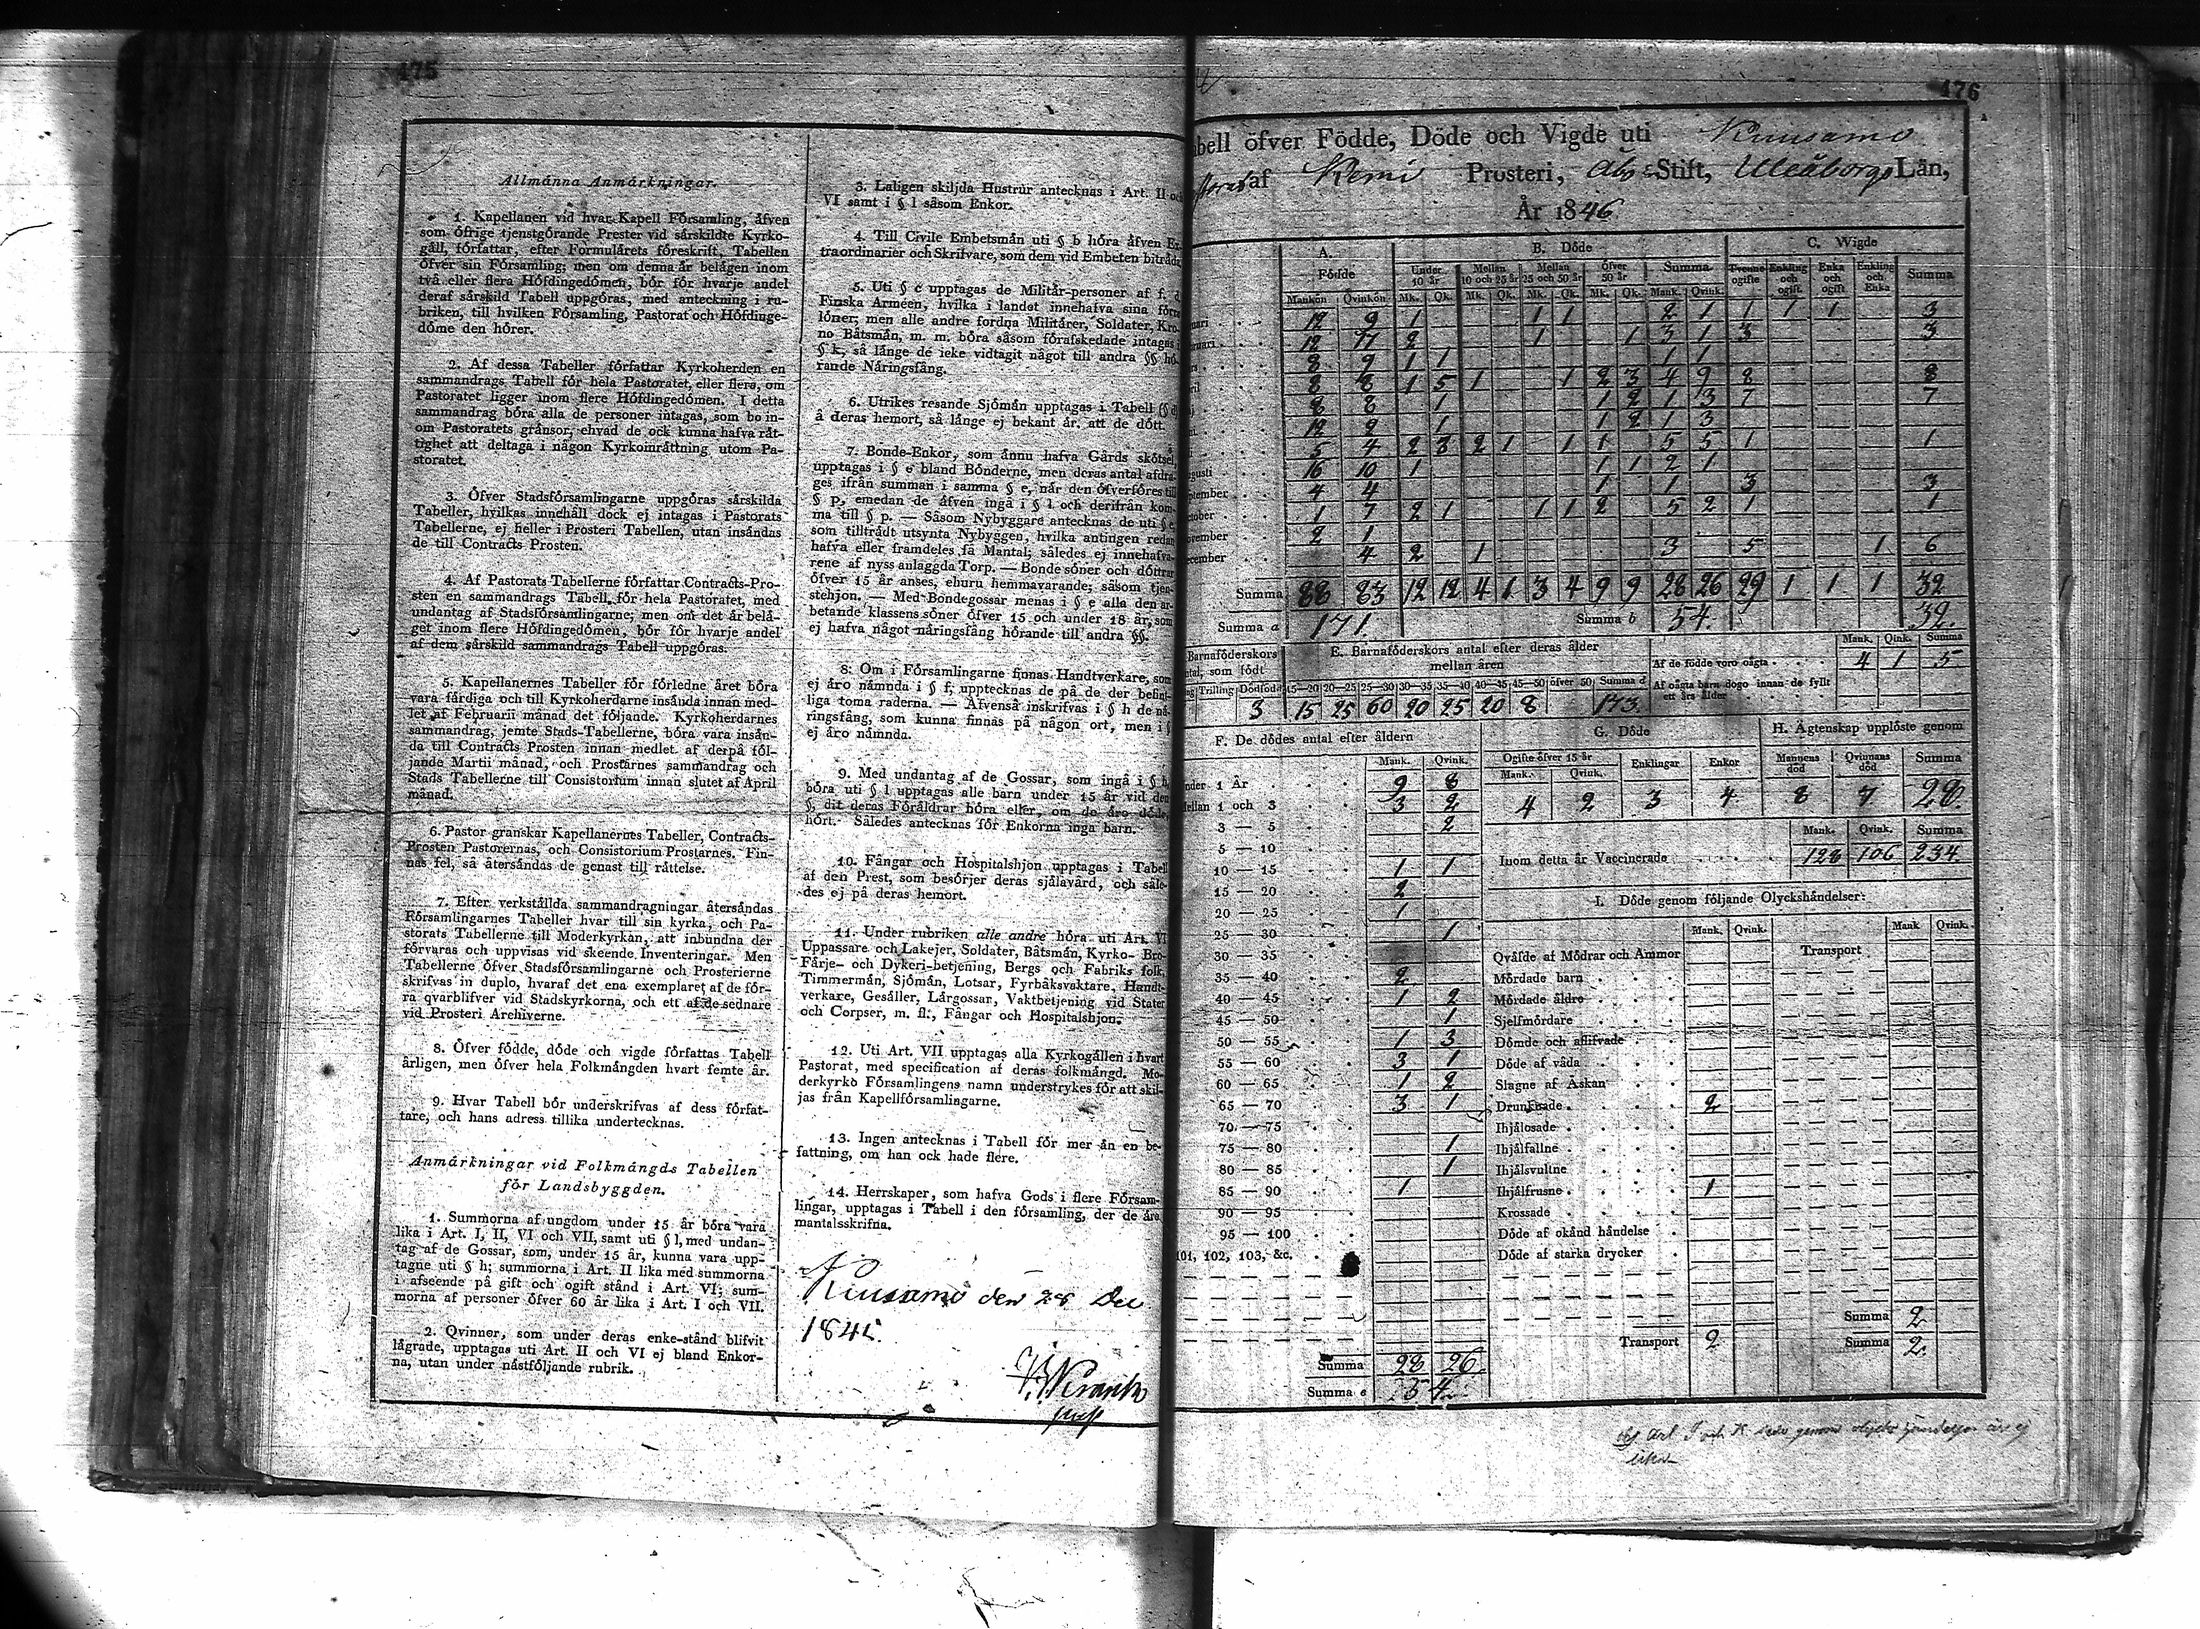 475
Allmánna Anmárkningar.
1. Kapellanen vid hvar Kapell Fórsamling, áfven
som ófrige tjenstgórande Prester vid sárskildte Kyrko-
gáll, fórfattar, efter Formulárets fóreskrift, Tabellen
ófver sin Fórsamling; men om denna ár belágen inom
två eller flera Hófdingedómen, bór fór hvarje andel
deraf sárskild Tabell uppgóras, med anteckning i ru-
briken, till hvilken Fórsamling, Pastorat och Hófdinge-
dóme den hórer.
2. Af dessa Tabeller fórfattar Kyrkoherden en
sammandrags Tabell fór hela Pastoratet, eller flera, om
Pastoratet ligger inom flere Hófdingedómen. I detta
sammandrag bóra alla de personer intagas, som bo in-
om Pastoratets gránsor, ehvad de ock kunna hafva rát-
tighet att deltaga i någon Kyrkoinráttning utom Pa-
storatet.
3. Ófver Stadsfórsamlingarne uppgóras sárskilda
Tabeller, hvilkas innehåll dock ej intagas i Pastorats
Tabellerne, ej heller i Prosteri Tabellen, utan insándas
de till Contracts Prosten.
4. Af Pastorats Tabellerne fórfattar Contracts-Pro-
sten en sammandrags Tabell fór hela Pastoratet, med
undantag af Stadsfórsamlingarne; men om det ár belá-
get inom flere Hófdingedómen, bór fór hvarje andel
af dem sárskild sammandrags Tabell uppgóras.
5. Kapellanernes Tabeller fór fórledne året bóra
vara fárdiga och till Kyrkoherdarne insánda innan med-
let af Februarii månad det fóljande. Kyrkoherdarnes
sammandrag, jemte Stads-Tabellerne, bóra vara insán-
da till Contracts Prosten innan medlet af derpå fól-
jande Martii månad, och Prostarnes sammandrag och
Stads Tabellerne till Consistorium innan slutet af April
månad.
6. Pastor granskar Kapellanernes Tabeller, Contracts-
Prosten Pastorernas, och Consistorium Prostarnes. Fin-
nas fel, så återsándas de genast till ráttelse.
7. Efter verkstállda sammandragningar återsándas
Fórsamlingarnes Tabeller hvar till sin kyrka, och Pa-
storats Tabellerne till Moderkyrkan, att inbundna der
fórvaras och uppvisas vid skeende Inventeringar. Men
Tabellerne ófver Stadsfórsamlingarne och Prosterierne
skrifvas in duplo, hvaraf det ena exemplaret af de fór-
ra qvarblifver vid Stadskyrkorna, och ett af de sednare
vid Prosteri Archiverne.
8. Ófver fódde, dóde och vigde fórfattas Tabell
årligen, men ófver hela Folkmángden hvart femte år.
9. Hvar Tabell bór underskrifvas af dess fórfat-
tare, och hans adress tillika undertecknas.
Anmárkningar vid Folkmángds Tabellen
fór Landsbyggden.
1. Summorna af ungdom under 15 år bóra vara
lika i Art. I, II, VI och VII, samt uti § l, med undan-
tag af de Gossar, som, under 15 år, kunna vara upp-
tagne uti § h; summorna i Art. II lika med summorna
i afseende på gift och ogift stånd i Art. VI; sum-
morna af personer ófver 60 år lika i Art. I och VII.
2. Qvinnor, som under deras enke-stånd blifvit
lágrade, upptagas uti Art. II och VI ej bland Enkor-
na, utan under nástfóljande rubrik.
3. Laligen skiljda Hustrur antecknas i Art. II och
VI samt i § l såsom Enkor.
4. Till Civile Embetsmán uti § b hóra áfven Ex-
traordinarier och Skrifvare, som dem vid Embeten bitráda
5. Uti § c upptagas de Militár-personer af f. d.
Finska Arméen, hvilka i landet innehafva sina fórra
lóner; men alle andre fordna Militárer, Soldater, Kro-
no Båtsmán, m. m. bóra såsom fórafskedade intagas i
§ k, så lánge de icke vidtagit något till andra §§ hó-
rande Náringsfång.
6. Utrikes resande Sjómán upptagas i Tabell (§ d)
å deras hemort, så lánge ej bekant ár, att de dótt.
7. Bonde-Enkor, som ánnu hafva Gårds skótsel,
upptagas i § e bland Bónderne, men deras antal afdra-
ges ifrån summan i samma § e, når den ófverfóres till
§ p, emedan de áfven ingå i § l och derifrån kom-
ma till § p. — Såsom Nybyggare antecknas de uti § e,
som tilltrådt utsynta Nybyggen, hvilka antingen redan
hafva eller framdeles få Mantal; således ej innehafva-
rene af nyss anlaggda Torp. — Bonde sóner och dóttrar
ófver 15 år anses, ehuru hemmavarande, såsom tjen-
stehjon. — Med Bondegossar menas i § e alla den ar-
betande klassens sóner ófver 15 och under 18 år, som
ej hafva något náringsfång hórande till andra §§.
8. Om i Fórsamlingarne finnas Handtverkare, som
ej áro námnda i § f, upptecknas de på de der befint-
liga toma raderna. — Áfvenså inskrifvas i § h de ná-
ringsfång, som kunna finnas på någon ort, men i §
ej áro námnda.
9. Med undantag af de Gossar, som ingå i § h,
bóra uti § l upptagas alle barn under 15 år vid den
§, dit deras Fóráldrar hóra eller, om de áro dóde,
hórt. Således antecknas fór Enkorna inga barn.
10. Fångar och Hospitalshjon upptagas i Tabell
af den Prest, som besórjer deras sjålavård, och såle-
des ej på deras hemort.
11. Under rubriken alle andre hóra uti Art. VI
Uppassare och Lakejer, Soldater, Båtsmán, Kyrko- Bro-
Fárje- och Dykeri-betjening, Bergs och Fabriks folk,
Timmermán, Sjómán, Lotsar, Fyrbåksvaktare, Handt-
verkare, Gesáller, Lárgossar, Vaktbetjening vid Stater
och Corpser, m. fl., Fångar och Hospitalshjon.
12. Uti Art. VII upptagas alla Kyrkogállen i hvart
Pastorat, med specification af deras folkmángd. Mo-
derkyrko Fórsamlingens namn understrykes fór att skil-
jas från Kapellfórsamlingarne.
13. Ingen antecknas i Tabell fór mer án en be-
fattning, om han ock hade flere.
14. Herrskaper, som hafva Gods i flere Fórsam-
lingar, upptagas i Tabell i den fórsamling, der de áro
mantalsskrifna.
Kuusamo den 28 Dec
476
bell ófver Fódde, Dóde och Vigde uti Kuusamo
af Kemi Prosteri, Åbo Stift, Uleåborgs Län,
År 1846
A. B. Dóde C. Wigde
Fódde Under 10 år Mellan 10 och 25 år Mellan 25 och 50 år Ófver 50 år Summa Tvenne ogifte Enkling och ogift Enka och ogift Enkling och Enka Summa
Mankón Qvinkón Mk. Qk. Mk. Qk. Mk. Qk. Mk. Qk. Mank. Qvink.
uari 12 9 1 1 1 2 1 1 1 1 3
ruari 12 17 2 1 1 3 1 3 3
8 9 1 1 1 1
ril 8 8 1 5 1 1 2 3 4 9 8 8
8 8 1 1 2 1 3 7 7
12 2 1 1 2 1 3
5 4 2 3 2 1 1 1 5 5 1 1
gusti 16 10 1 1 1 2 1
ptember 4 4 1 1 3 3
ctober 1 7 2 1 1 1 2 5 2 1 1
ovember 2 1
ecember 4 2 1 3 5 1 6
Summa 88 83 12 12 4 1 3 4 9 9 28 26 29 1 1 1 32
Summa a 171. Summa b 54. 32.
Barnafóderskors
tal, som fódt
Trilling Dódfódt
3
E. Barnafóderskors antal efter deras ålder
mellan åren
15—20 20—25 25—30 30—35 35—40 40—45 45—50 ófver 50 Summa d
15 25 60 20 25 20 8 173.
Mank. Qink. Summa
Af de fódde voro oágta 4 1 5
Af oágta barn dogo innan de fyllt
ett års ålder
F. De dódes antal efter åldern
Mank. Qvink.
nder 1 År 9 8
ellan 1 och 3 3 2
3 — 5 2
5 — 10
10 — 15 1 1
15 — 20 2
20 — 25 1
25 — 30 1
30 — 35
35 — 40 2
40 — 45 1 2
45 — 50 1
50 — 55 1 3
55 — 60 3 1
60 — 65 1 2
65 — 70 3 1
70 — 75
75 — 80 1
80 — 85 1
85 — 90 1
90 — 95
95 — 100
101, 102, 103, &c.
Summa 28 26.
Summa e 54.
G. Dóde
Ogifte ófver 15 år Enklingar Enkor
Mank. Qvink.
4 2 3 4
H. Ägtenskap upplóste genom
Mannens dód Qvinnans dód Summa
8 7
Mank. Qvink. Summa
Inom detta år Vaccinerade 128 106 234.
I. Dóde genom fóljande Olyckshándelser:
Mank. Qvink. Transport Mank Qvink.
Qváfde af Módrar och Ammor
Mórdade barn
Mórdade áldre
Sjelfmórdare
Dómde och aflifvade
Dóde af våda
Slagne af Åskan
Drunknade 2
Ihjálosade
Ihjálfallne
Ihjálsvultne
Ihjálfrusne 1
Krossade
Dóde af okánd hándelse
Dóde af starka drycker
Summa 2
Transport 2 Summa 2.